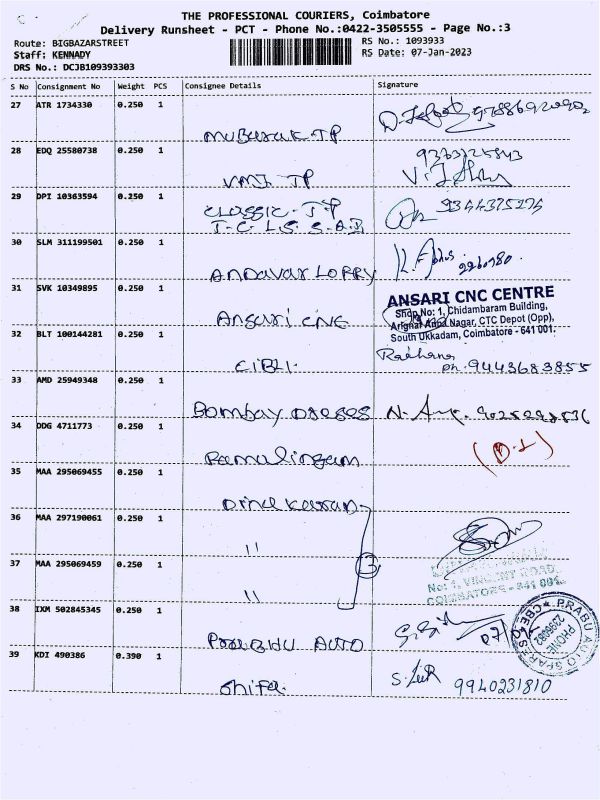 THE PROFESSIONAL COURIERS, Coimbatore
Delivery Runsheet - PCT - Phone No.:0422-3505555 - Page No.:3
Route: BIGBAZARSTREET RS No.: 1093933
Staff: KENNADY RS Date: 07-Jan-2023
DRS No.: DCJB109393303
S No Consignment No Weight PCS Consignee Details Signature
27 ATR 1734330 0.250 1
Mubarak TP
28 EDQ 25580738 0.250 1
VMJ TP
29 DPI 10363594 0.250 1
classic-TP 9344375274
30 SLM 311199501 0.250 1
Andavar Lorry
31 SVK 10349895 0.250 1
Ansari CNC
ANSARI CNC CENTRE
Shop No: 1, Chidambaram Building,
Arignar Anna Nagar, CTC Depot (Opp),
South Ukkadam, Coimbatore - 641 001.
32 BLT 100144281 0.250 1
CIBLI. Rathana
ph. 9443683855
33 AMD 25949348 0.250 1
Bombay Dreses
34 DDG 4711773 0.250 1
Ramalingam (D.L)
35 MAA 295069455 0.250 1
Dinakaran
36 MAA 297190061 0.250 1
"
37 MAA 295069459 0.250 1
" 3
No: 1, VINCENT ROAD,
COIMBATORE - 641 001.
38 IXM 502845345 0.250 1
Prabhu Auto
PRABU AUTO SPARES CBE
PHONE
39 KDI 490386 0.390 1
Shifa. 9940231810